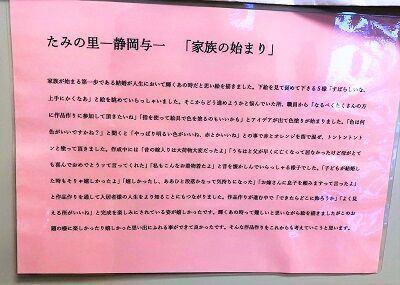 たみの里―静岡与一 「家族の始まり」
家族が始まる第一歩である結婚が人生において輝くあの時だと思い絵を描きました。下絵を見て褒めて下さるS様「すばらしいな、
上手にかくなあ」と絵を眺めていらっしゃいました。そこからどう進めようかと悩んでいた所、職員から「なるべくたくさんの方
に作品作りに参加して頂きたいね」「指を使って絵具で色を塗るのもいいかも」とアイデアが出て色塗りが始まりました。「色は何
色がいいですかね?」と聞くと「やっぱり明るい色がいいね、赤とかいいね」との事で赤とオレンジを指で混ぜ、トントントント
ンと塗って頂きました。作成中には「昔の嫁入りは大荷物大変だったよ」「うちはと父が早くに亡くなって居なかったけど母がとて
も喜んでおめでとうって言ってくれた」「私もこんなお着物着たよ」と昔を懐かしんでいらっしゃる様子でした。「子どもが結婚し
た時もそりゃ嬉しかったよ」「嬉しかったし、ああひと段落かなって気持ちになった」「お嫁さんに息子を頼みますって言ったよ」
と作品作りを通して入居者様の人生をより知ることにもつながりました。作品作りが進む中で「できたらどこに飾ろうか」「よく見
える所がいいね」と完成を楽しみにされている姿が嬉しかったです。輝くあの時って難しいと思いながら絵を描きましたがこのお
題の様に楽しかったり嬉しかった思い出にふれる事ができて良かったです。そんな作品作りをこれからも考えていこうと思います。